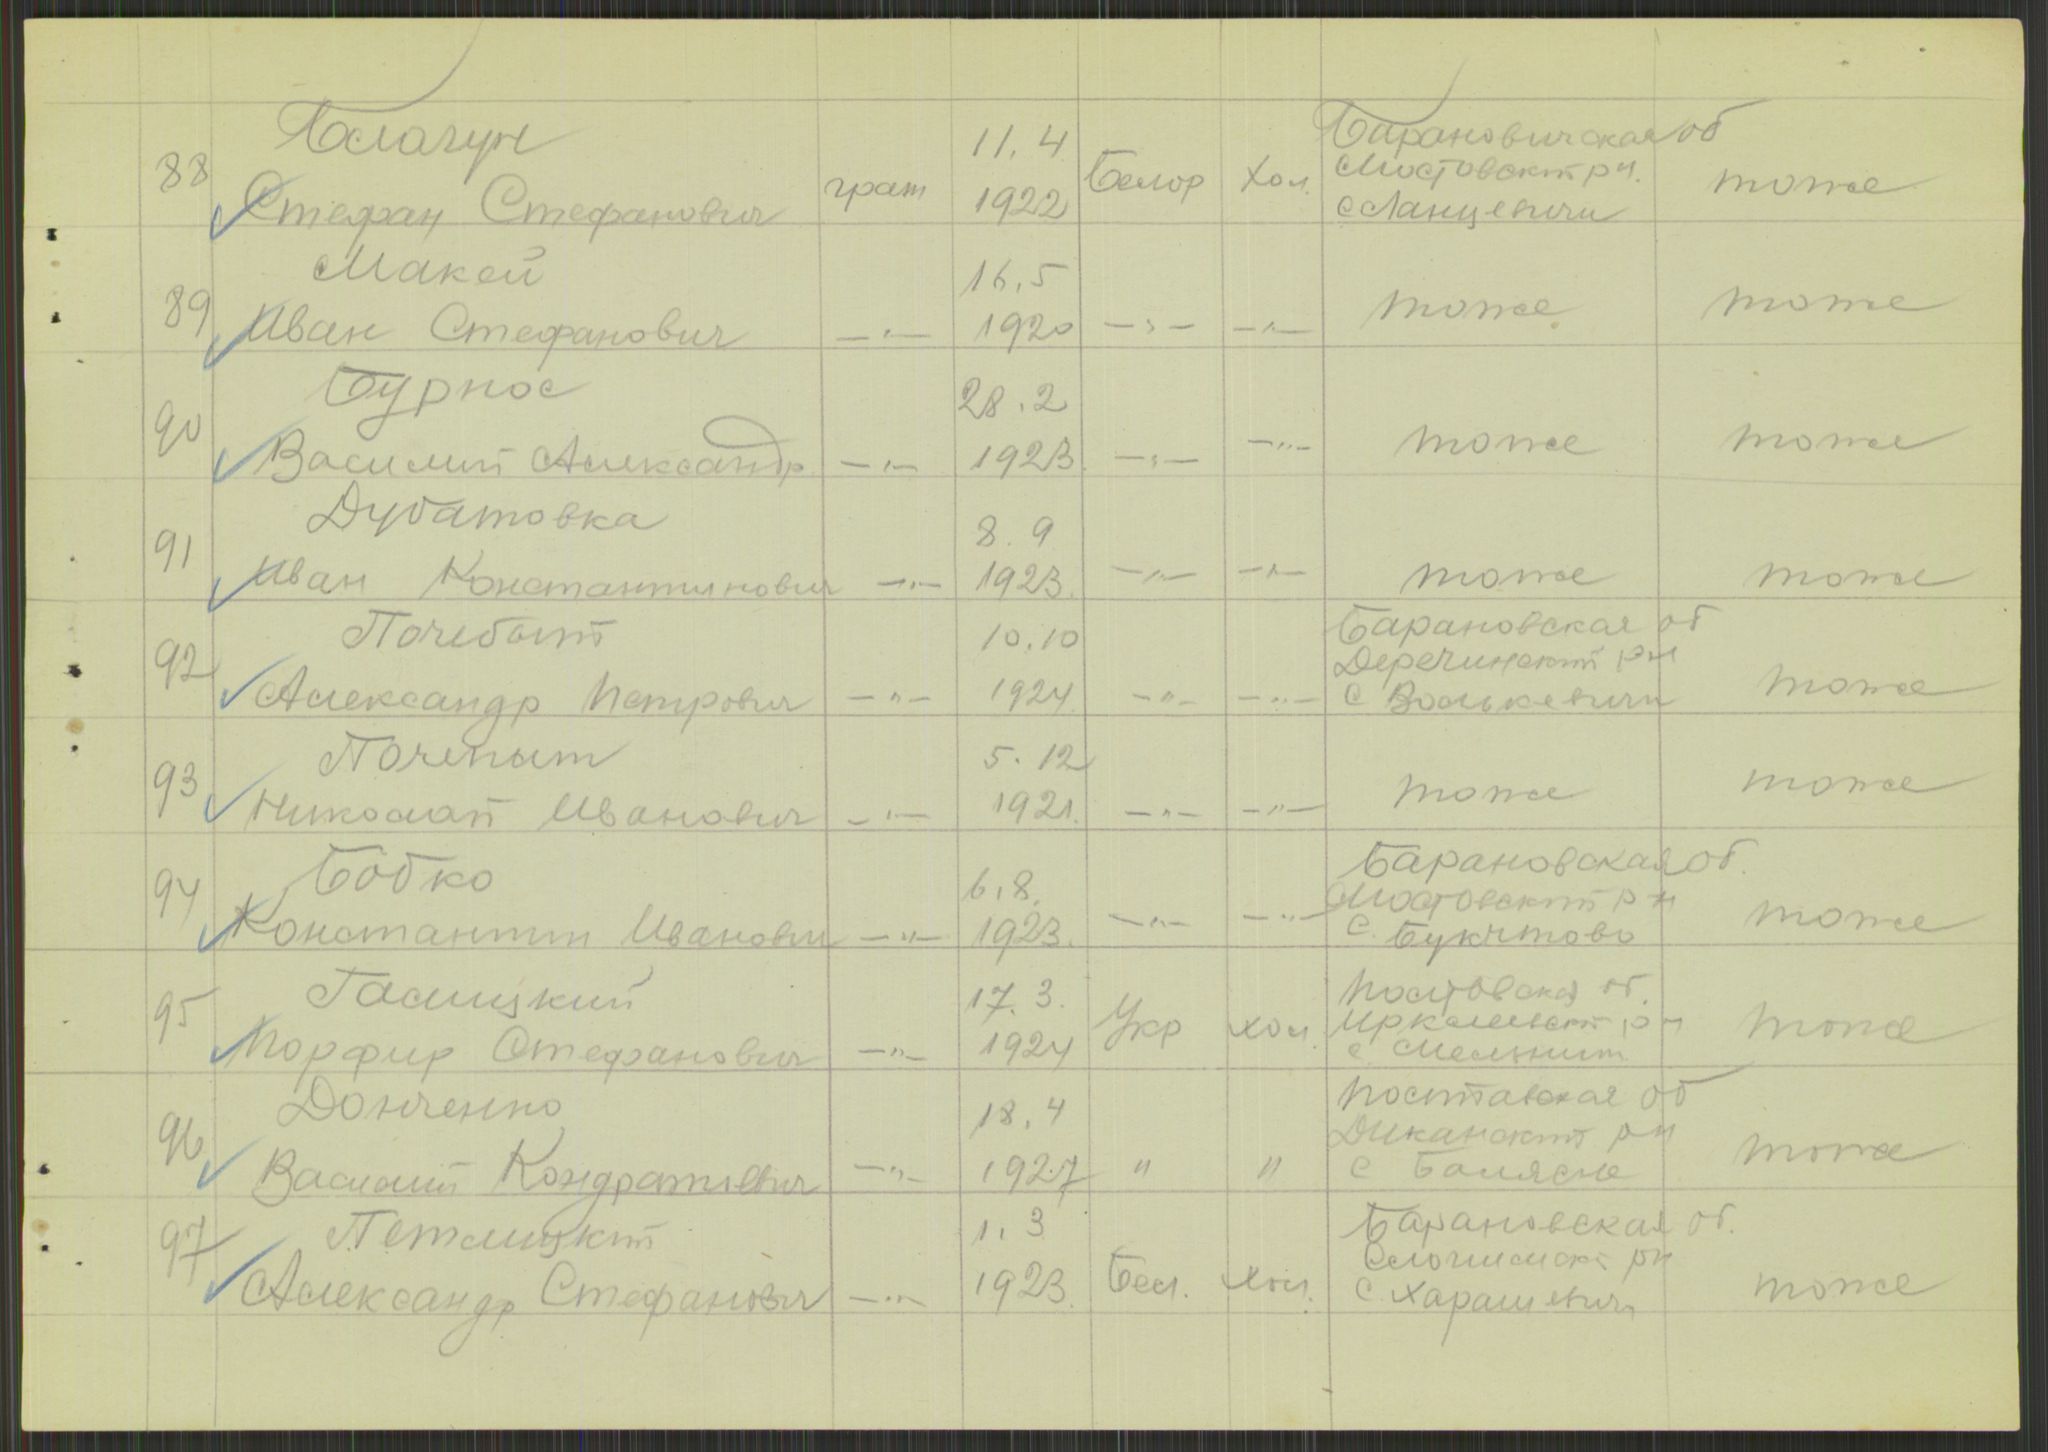 88 Благун 11.4 Барановичская об
Стефан Стефанович граж 1922 Белор Хол. Мостовский рн. тоже
с Ланцевичи
89 Макей 16.5
Иван Стефанович —"— 1920 —"— —"— тоже тоже
90 Бурнос 28.2
Василий Александр —"— 1923 —"— —"— тоже тоже
91 Дубатовка 8.9
Иван Константинович —"— 1923. —"— —"— тоже тоже
92 Почебыт 10.10 Барановская об
Александр Петрович —"— 1924 —"— —"— Деречинский рн тоже
с Волькевичи
93 Почепыт 5.12
Николай Иванович —"— 1921. —"— —"— тоже тоже
94 Бобко 6.8. Барановская об.
Константин Иванович —"— 1923. —"— —"— Мостовский р-н тоже
с. Букштово
95 Галицкий 17.3. об.
Порфир Стефанович —"— 1924 Укр хол. рн тоже
с
96 Донченко 18.4 Полтавская об
Василий Кондратиевич —"— 1927 " " Диканский рн тоже
с Балясне
97 Петлицкий 1.3 Барановская об.
Александр Стефанович —"— 1923. Бел. Хол. рн тоже
с. Харашевичи